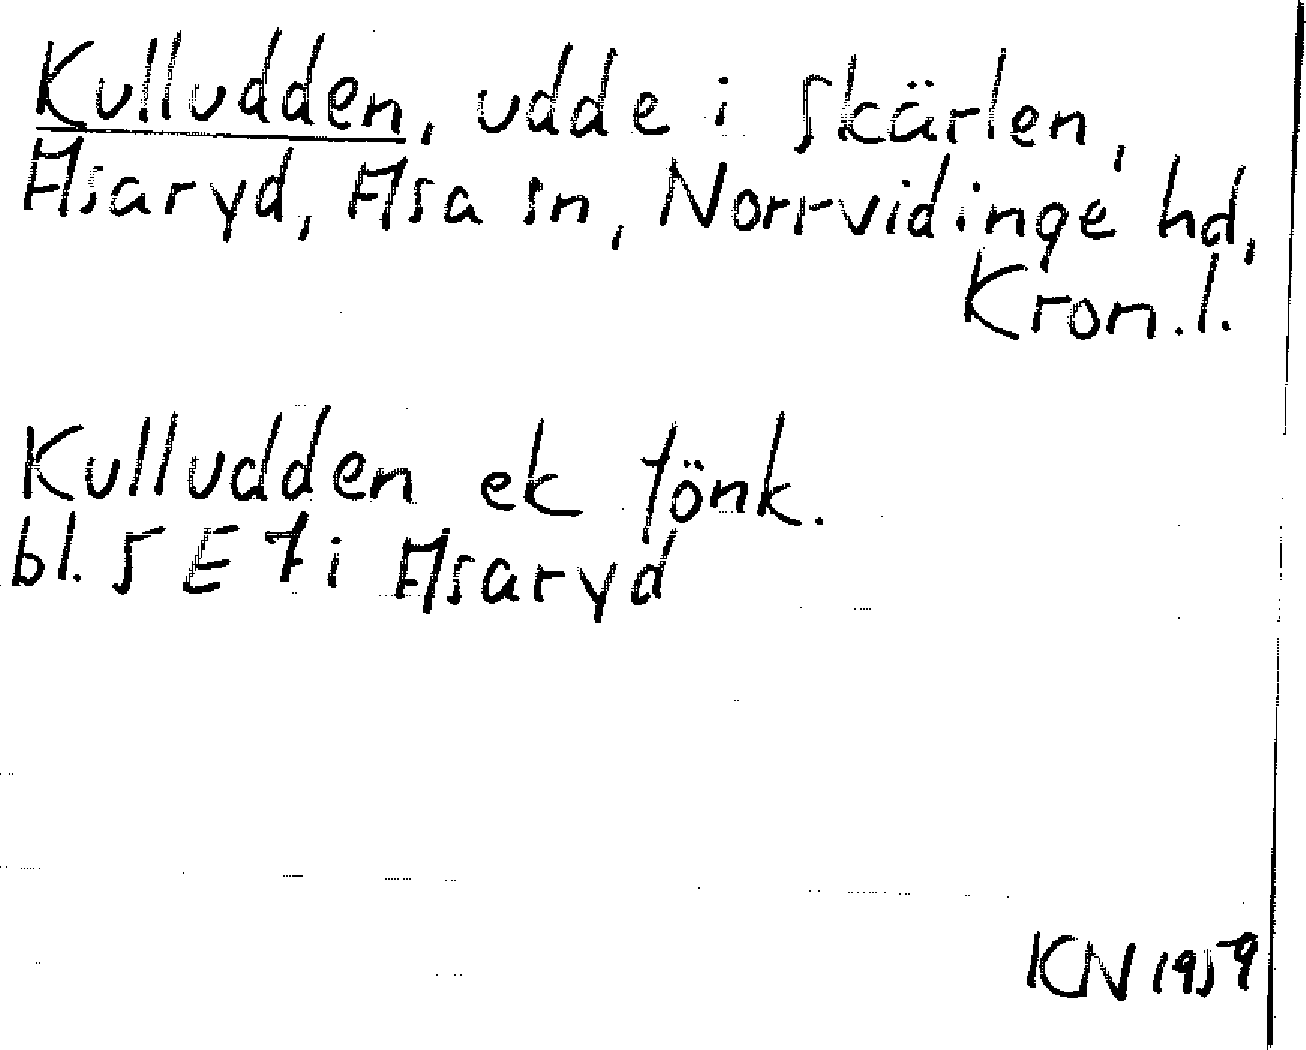 Kulludden, udde i Skärlen,
Asaryd, Asa sn, Norrvidinge hd,
Kron.l.
Kulludden ek fönk.
bl. 5 E 7 i Asaryd
KN 1959